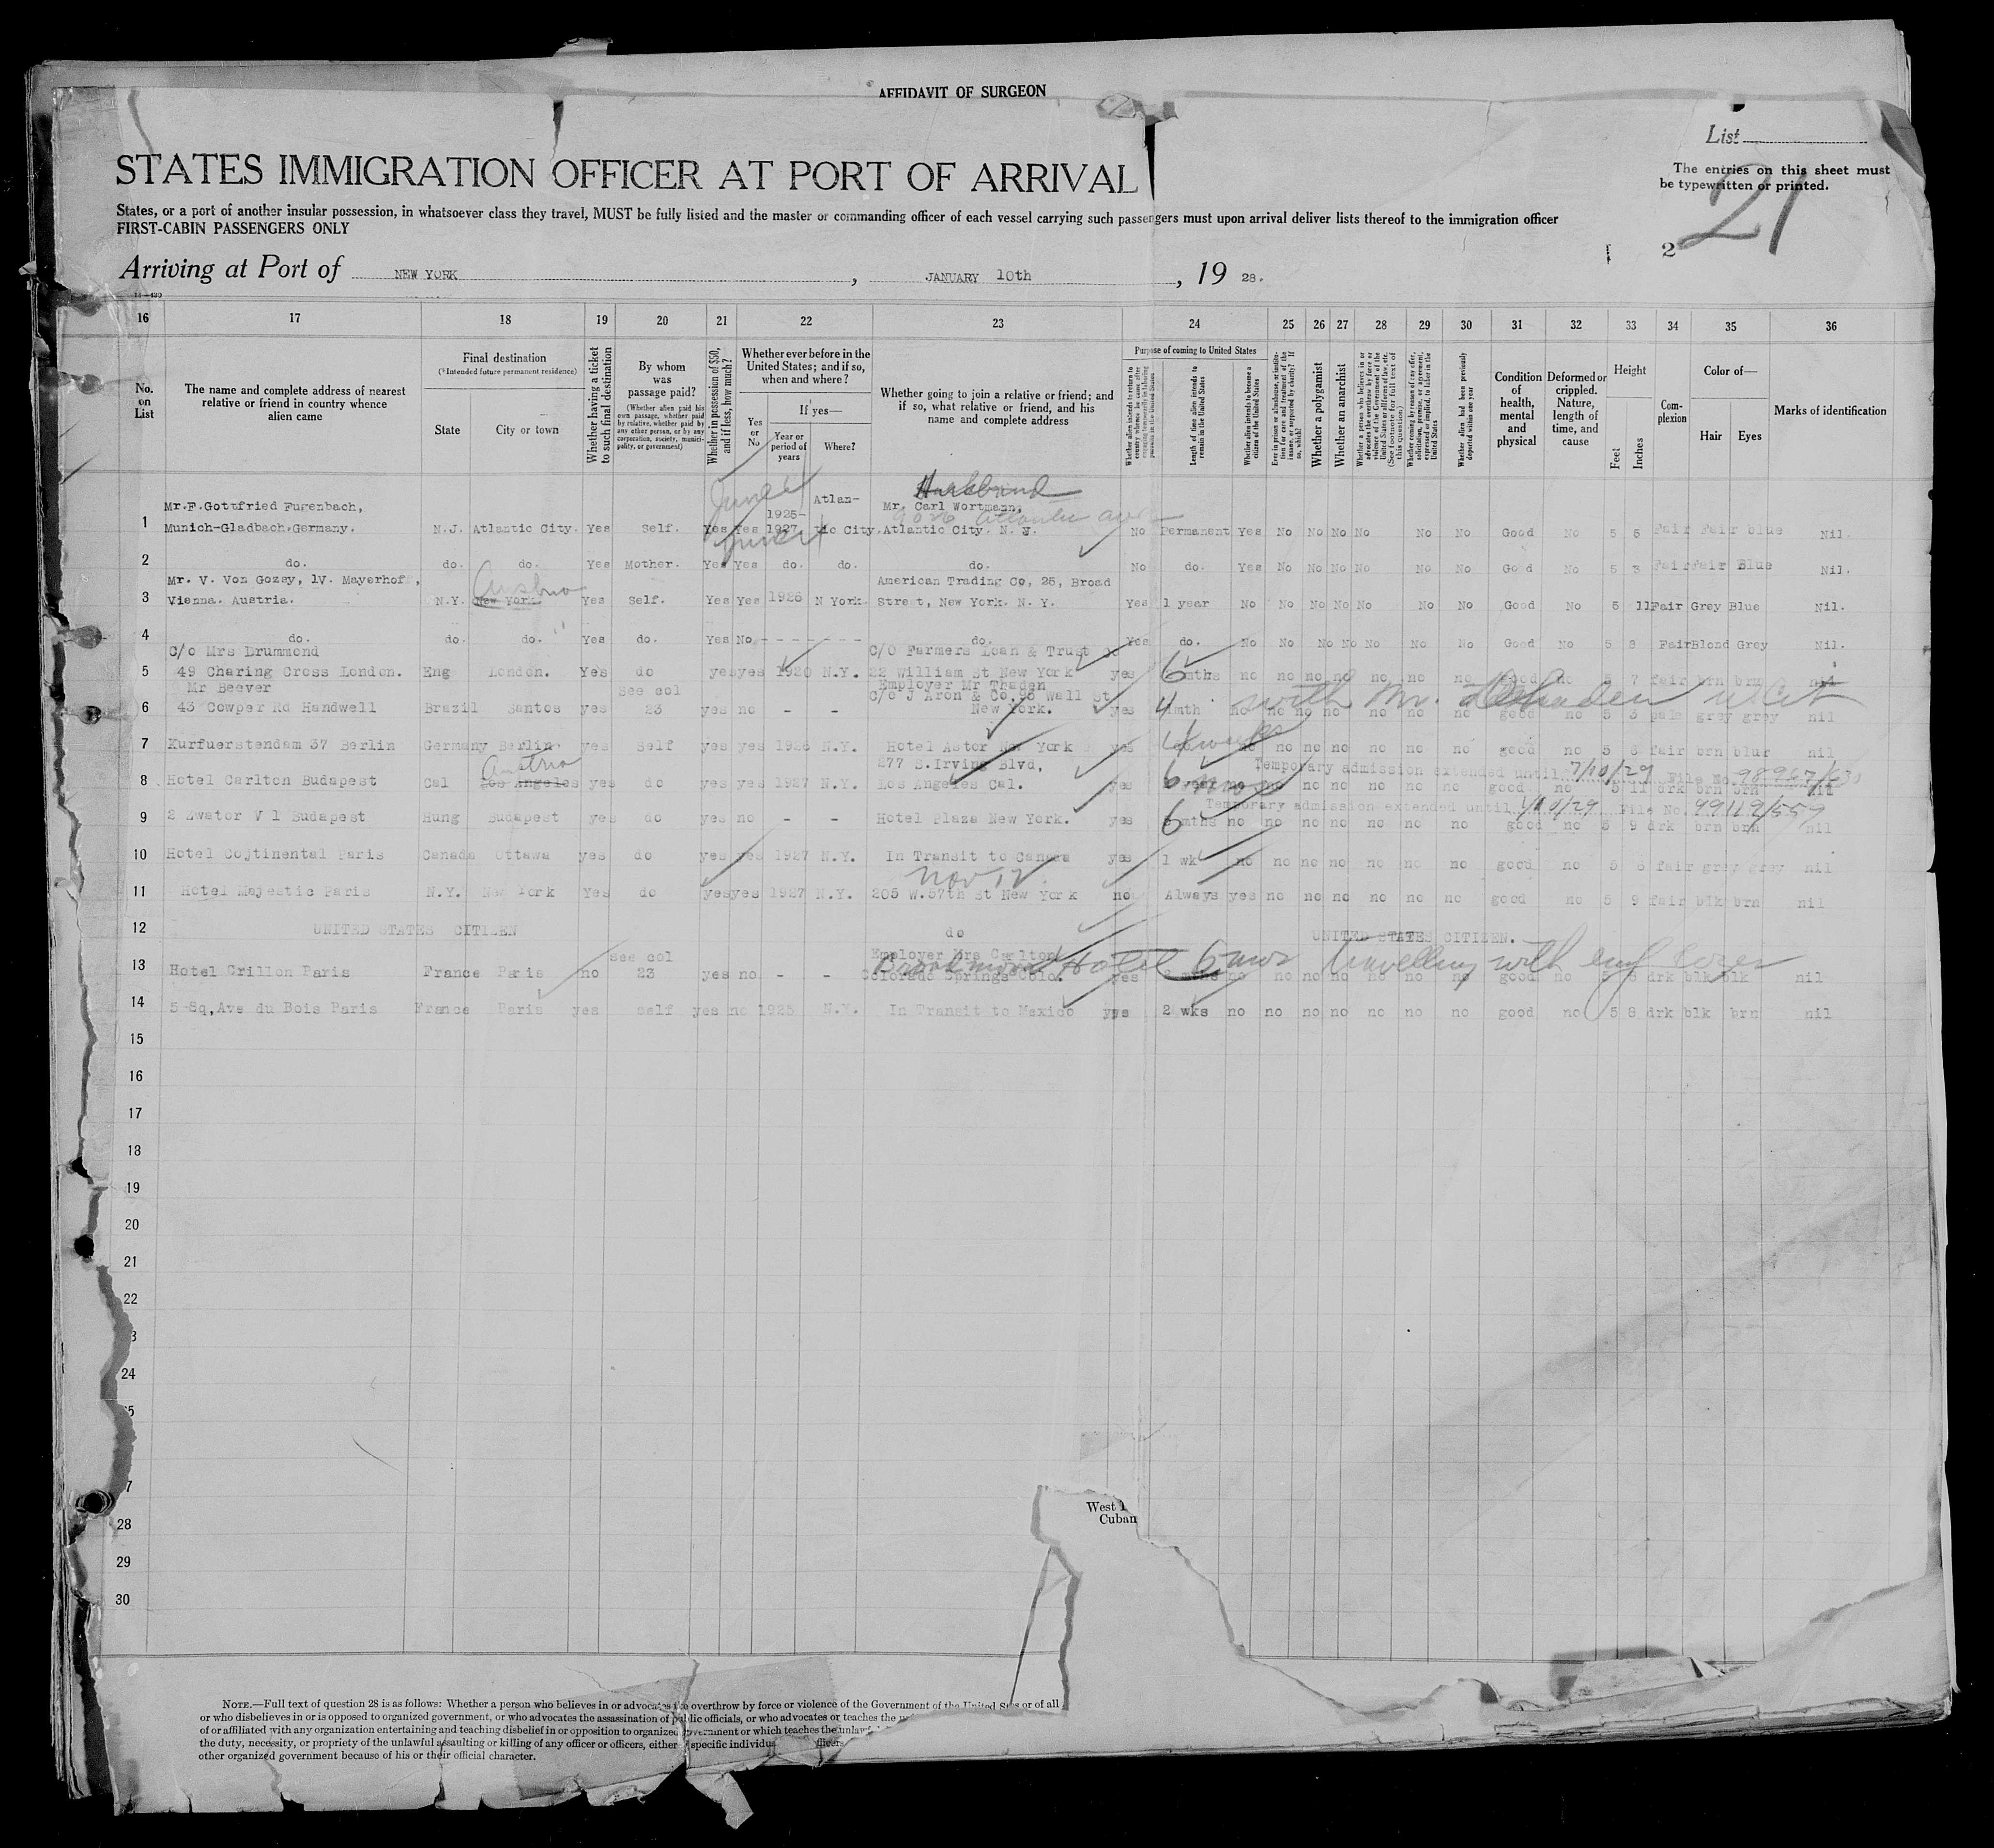 AFFIDAVIT OF SURGEON
List
STATES IMMIGRATION OFFICER AT PORT OF ARRIVAL
The entries on this sheet must
be typewritten or printed.
21
States, or a port of another insular possession, in whatsoever class they travel, MUST be fully listed and the master or commanding officer of each vessel carrying such passengers must upon arrival deliver lists thereof to the immigration officer
FIRST-CABIN PASSENGERS ONLY
2
Arriving at Port of NEW YORK, JANUARY 10th, 19 28.
16 17 18 19 20 21 22 23 24 25 26 27 28 29 30 31 32 33 34 35 36
No. on List
The name and complete address of nearest relative or friend in country whence alien came
Final destination
(*Intended future permanent residence)
State
City or town
Whether having a ticket to such final destination
By whom was passage paid?
(Whether alien paid his own passage, whether paid by relative, whether paid by any other person, or by any corporation, society, municipality, or government)
Whether in possession of $50, and if less, how much?
Whether ever before in the United States; and if so, when and where?
Yes or No
If yes—
Year or period of years
Where?
Whether going to join a relative or friend; and if so, what relative or friend, and his name and complete address
Purpose of coming to United States
Length of time alien intends to remain in the United States
Whether alien intends to become a citizen of the United States
Whether a polygamist
Whether an anarchist
Whether alien had been previously deported within one year
Condition of health, mental and physical
Deformed or crippled. Nature, length of time, and cause
Height
Feet
Inches
Complexion
Color of—
Hair
Eyes
Marks of identification
Husband
Mr.F.Gottfried Furenbach, 1925- Atlan- Mr. Carl Wortmann,
1 Munich-Gladbach.Germany. N.J. Atlantic City. Yes Self. Yes Yes 1927 tic City. Atlantic City. N. J. No Permanent Yes No No No No No No Good No 5 6 Fair Fair blue Nil.
2 do. do. do. Yes Mother. Yes Yes do. do. do. No do. Yes No No No No No No Good No 5 3 Fair Fair Blue Nil.
Mr. V. Von Gozsy, 1V. Mayerhoff, Austria American Trading Co, 25, Broad
3 Vienna. Austria. N.Y. New York Yes Self. Yes Yes 1926 N York. Street, New York. N. Y. Yes 1 year No No No No No No No Good No 5 11 Fair Grey Blue Nil.
4 do. do. do. Yes do. Yes No - - - - - - do. Yes do. No No No No No No No Good No 5 8 Fair Blond Grey Nil.
C/o Mrs Drummond C/O Farmers Loan & Trust
5 49 Charing Cross London. Eng London. Yes do yes yes 1920 N.Y. 22 William St New York yes 6 mths no no no no no no no good no 7 fair brn brn nil
Mr Beever See col Employer Mr Thaden
C/o J Aron & Co, 96 Wall St
6 43 Cowper Rd Handwell Brazil Santos yes 23 yes no - - New York. yes 4 mth no no no no no no no good no 5 3 pale grey grey nil
with Mr.
7 Kurfuerstendam 37 Berlin Germany Berlin yes self yes yes 1926 N.Y. Hotel Astor New York yes 4 weeks no no no no no no good no 5 6 fair brn blur nil
Austria 277 S.Irving Blvd, Temporary admission extended until 7/10/29 File No.
8 Hotel Carlton Budapest Cal Los Angeles yes do yes yes 1927 N.Y. Los Angeles Cal. yes 6 mos no no no no no no good no 5 11 drk brn brn nil
Temporary admission extended until 1/10/29 File No. 99119/559
9 2 Zwator V 1 Budapest Hung Budapest yes do yes no - - Hotel Plaza New York. yes 6 mths no no no no no no no good no 5 9 drk brn brn nil
10 Hotel Cojtinental Paris Canada Ottawa yes do yes yes 1927 N.Y. In Transit to Canada yes 1 wk no no no no no no no good no 5 6 fair grey grey nil
Nov 12
11 Hotel Majestic Paris N.Y. New York Yes do yes yes 1927 N.Y. 205 W.57th St New York no Always yes no no no no no no good no 5 9 fair blk brn nil
12 UNITED STATES CITIZEN do UNITED STATES CITIZEN.
See col Employer Mrs Carlton
13 Hotel Crillon Paris France Paris no 23 yes no - - Colorado Springs Colo. yes 6 mos no no no no no no no good no 5 8 drk blk blk nil
Hotel travelling with employer
14 5-Sq,Ave du Bois Paris France Paris yes self yes no 1925 N.Y. In Transit to Mexico yes 2 wks no no no no no no no good no 5 8 drk blk brn nil
15
16
17
18
19
20
21
22
3
24
5
7
West I
Cuban
28
29
30
NOTE.—Full text of question 28 is as follows: Whether a person who believes in or advocates the overthrow by force or violence of the Government of the United States or of all
or who disbelieves in or is opposed to organized government, or who advocates the assassination of public officials, or who advocates or teaches the
of or affiliated with any organization entertaining and teaching disbelief in or opposition to organized government or which teaches the unlaw
the duty, necessity, or propriety of the unlawful assaulting or killing of any officer or officers, either of specific individu officers
other organized government because of his or their official character.